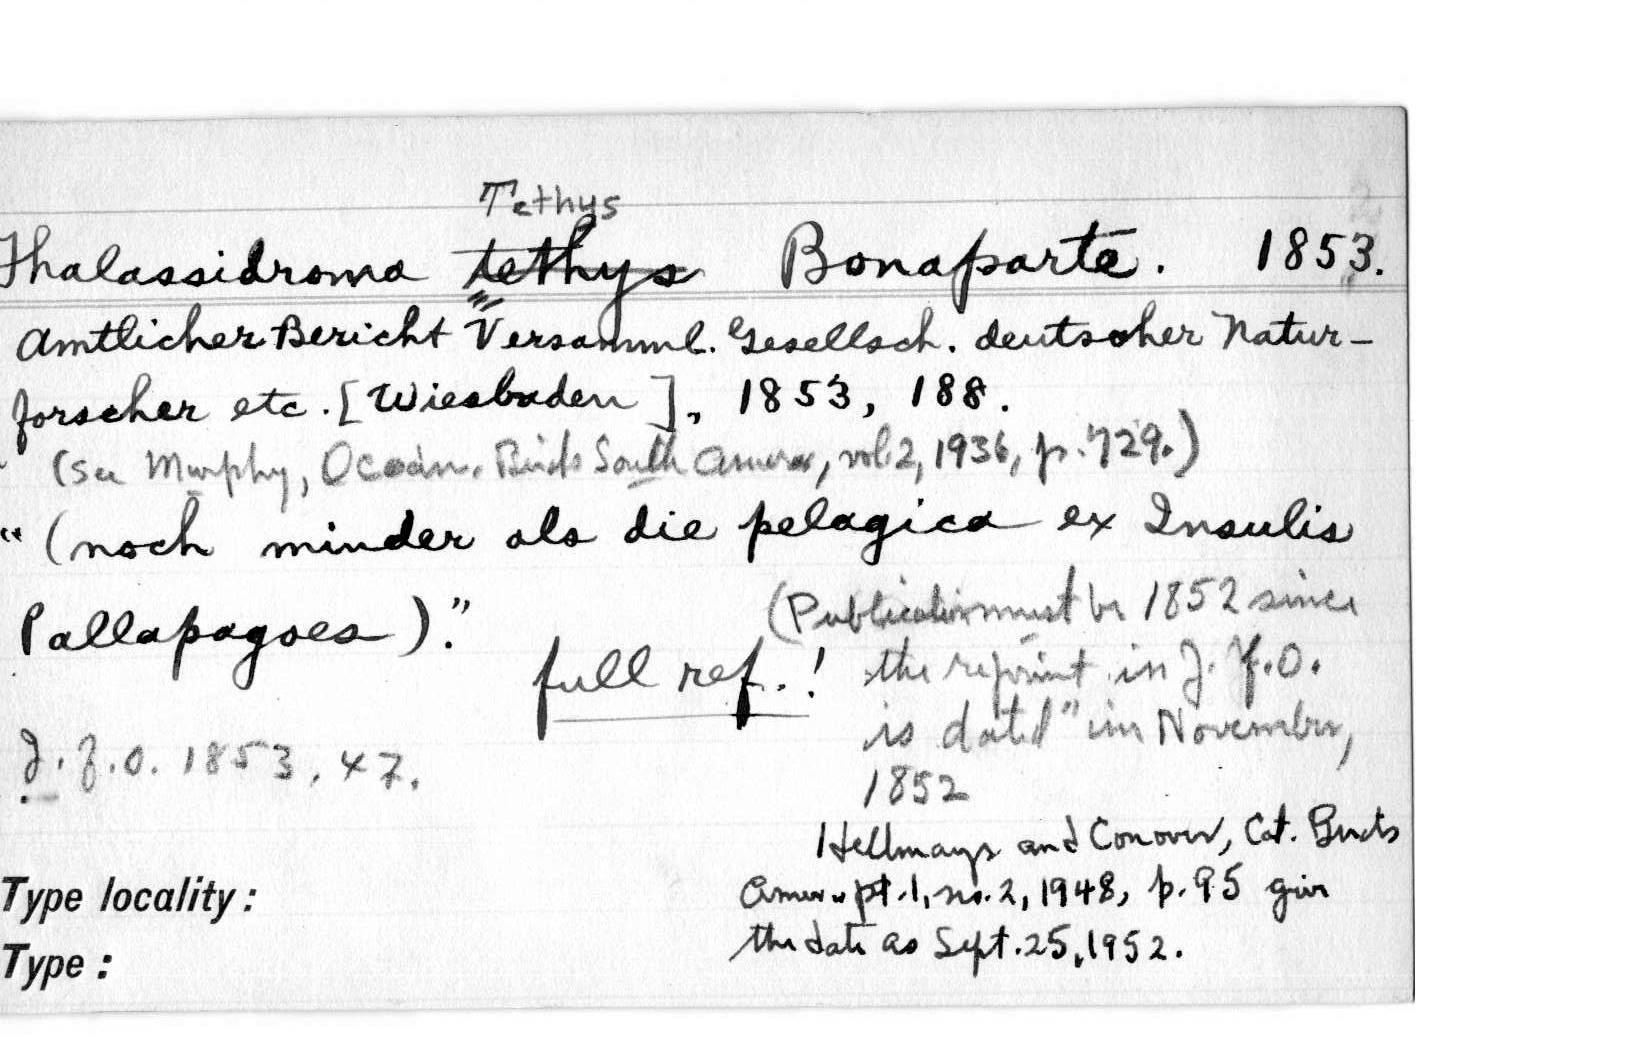 Tethys
Thalassidroma tethys Bonaparte. 1853.
Amtlicher Bericht Versamml. Gesellsch. deutscher Natur-
forscher etc. [Wiesbaden], 1853, 188.
(see Murphy, Ocean. Birds South Amer., vol. 2, 1936, p. 729.)
"(noch minder als die pelagica ex Insulis
Pallapagoes)."
full ref.!
(Publication must be 1852 since
the reprint in J. f. O.
is dated "im November,
1852
J. f. O. 1853, 47.
Hellmayr and Conover, Cat. Birds
Amer. pt. 1, no. 2, 1948, p. 95 give
the date as Sept. 25, 1952.
Type locality:
Type: